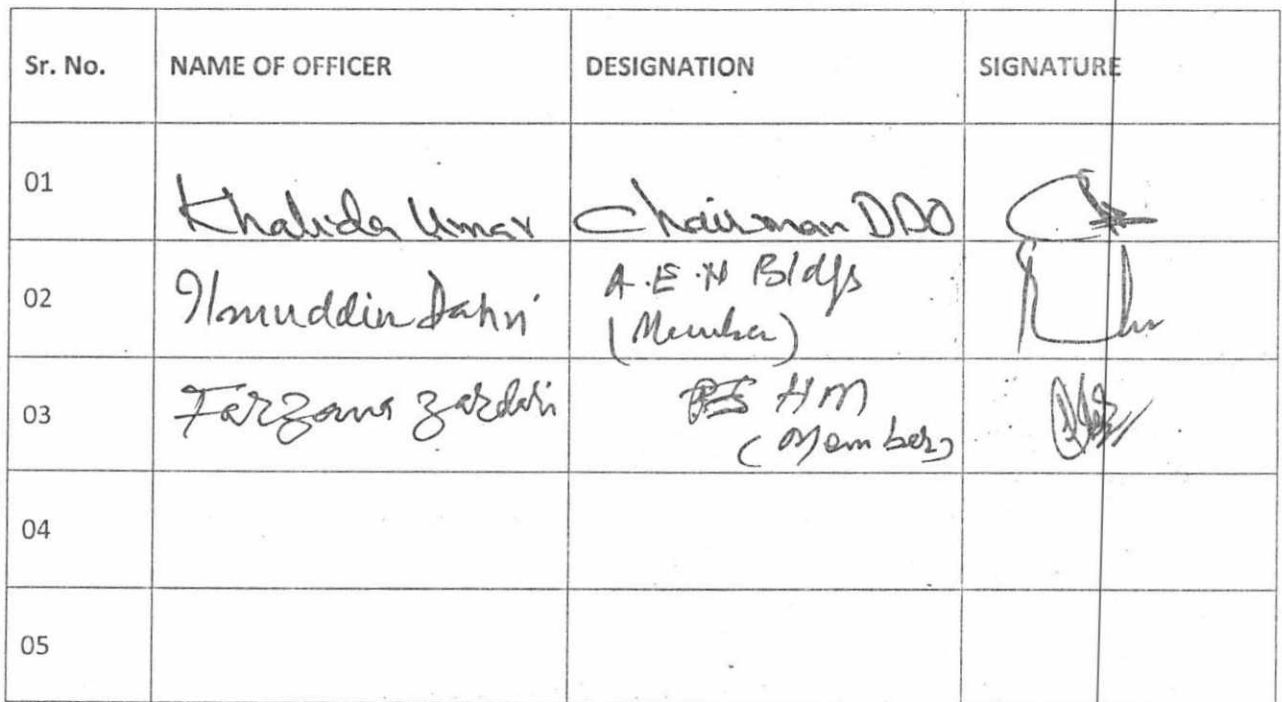 Sr. No. NAME OF OFFICER DESIGNATION SIGNATURE
01 Khalida Umar Chairman DDO
02 Ilmuddin Dahri A.E.N Bldgs
(Member)
03 Farzana Zardari HM
(Member)
04
05